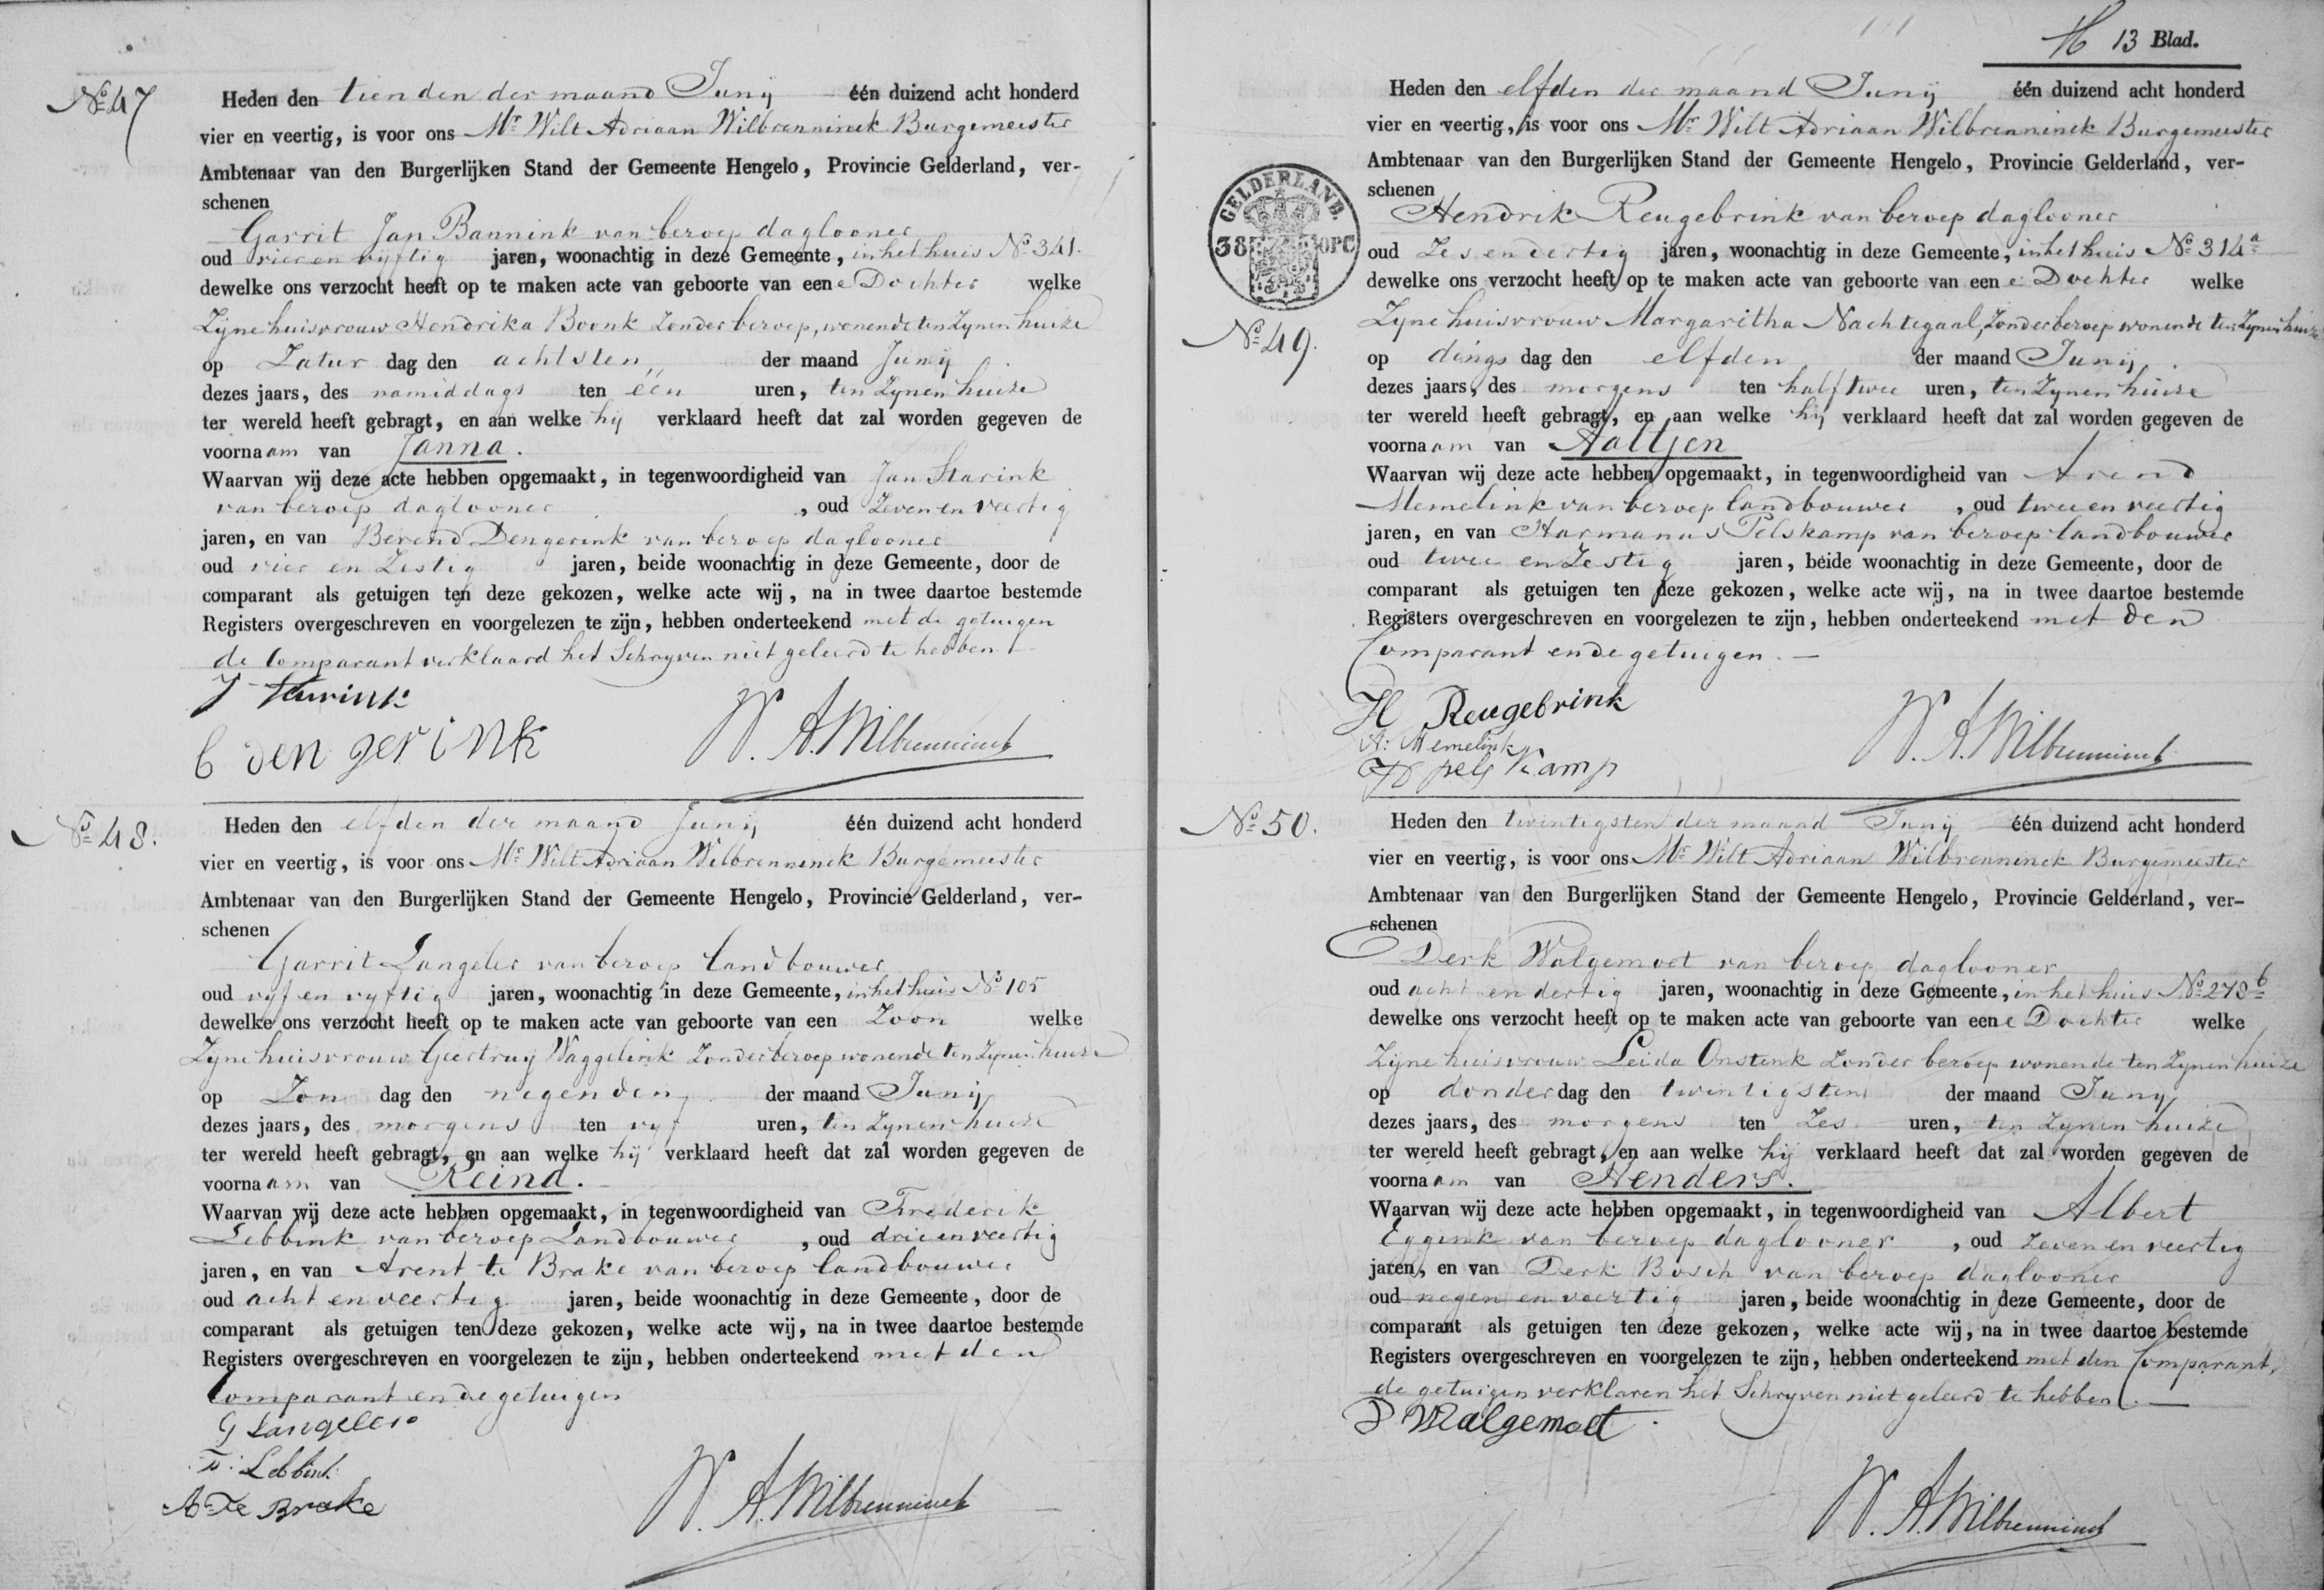 No 47
Heden den tienden der maand Junij één duizend acht honderd
vier en veertig, is voor ons Mr Wilt Adriaan Wilbrenninck Burgemeester
Ambtenaar van den Burgerlijken Stand der Gemeente Hengelo, Provincie Gelderland, ver-
schenen
Garrit Jan Bannink van beroep daglooner
oud vier en vyftig jaren, woonachtig in deze Gemeente, in het huis No 341.
dewelke ons verzocht heeft op te maken acte van geboorte van eene Dochter welke
Zijne huisvrouw Hendrika Boonk Zonder beroep, wonende ten Zynen huize
op Zatur dag den achtsten der maand Junij
dezes jaars, des namiddags ten één uren, ten Zynen huize
ter wereld heeft gebragt, en aan welke hij verklaard heeft dat zal worden gegeven de
voornaam van Janna.
Waarvan wij deze acte hebben opgemaakt, in tegenwoordigheid van Jan Starink
van beroep daglooner, oud Zeven en veertig
jaren, en van Berend Dengerink van beroep daglooner
oud vier en Zestig jaren, beide woonachtig in deze Gemeente, door de
comparant als getuigen ten deze gekozen, welke acte wij, na in twee daartoe bestemde
Registers overgeschreven en voorgelezen te zijn, hebben onderteekend met de getuigen
de Comparant verklaard het Schryven niet geleerd te hebben.
J Starink
B Dengerink
W. A. Wilbrenninck
No 48.
Heden den elfden der maand Junij één duizend acht honderd
vier en veertig, is voor ons Mr Wilt Adriaan Wilbrenninck Burgemeester
Ambtenaar van den Burgerlijken Stand der Gemeente Hengelo, Provincie Gelderland, ver-
schenen
Garrit Langeler van beroep landbouwer
oud vyf en vyftig jaren, woonachtig in deze Gemeente, in het huis No 105
dewelke ons verzocht heeft op te maken acte van geboorte van een Zoon welke
Zijne huisvrouw Geertruy Waggelink Zonder beroep wonende ten Zynen huize
op Zon dag den negenden der maand Junij
dezes jaars, des morgens ten vyf uren, ten Zynen huize
ter wereld heeft gebragt, en aan welke hij verklaard heeft dat zal worden gegeven de
voornaam van Reind.
Waarvan wij deze acte hebben opgemaakt, in tegenwoordigheid van Frederik
Lebbink van beroep Landbouwer, oud drie en veertig
jaren, en van Arent te Brake van beroep landbouwer
oud acht en veertig jaren, beide woonachtig in deze Gemeente, door de
comparant als getuigen ten deze gekozen, welke acte wij, na in twee daartoe bestemde
Registers overgeschreven en voorgelezen te zijn, hebben onderteekend met den
Comparant en de getuigen
G Langeler
F: Lebbink
A Te Brake
W. A. Wilbrenninck
13 Blad.
Heden den elfden der maand Junij één duizend acht honderd
vier en veertig, is voor ons Mr Wilt Adriaan Wilbrenninck Burgemeester
Ambtenaar van den Burgerlijken Stand der Gemeente Hengelo, Provincie Gelderland, ver-
schenen
Hendrik Reugebrink van beroep daglooner
GELDERLAND.
38 OPC
oud Zes en dertig jaren, woonachtig in deze Gemeente, in het huis No 314a
dewelke ons verzocht heeft op te maken acte van geboorte van eene Dochter welke
No 49.
Zijne huisvrouw Margaritha Nachtegaal, Zonder beroep wonende ten Zynen huize
op dings dag den elfden der maand Junij
dezes jaars, des morgens ten half twee uren, ten Zynen huize
ter wereld heeft gebragt, en aan welke hij verklaard heeft dat zal worden gegeven de
voornaam van Aaltjen
Waarvan wij deze acte hebben opgemaakt, in tegenwoordigheid van Arend
Memelink van beroep landbouwer, oud twee en veertig
jaren, en van Harmanus Pelskamp van beroep landbouwer
oud twee en Zestig jaren, beide woonachtig in deze Gemeente, door de
comparant als getuigen ten deze gekozen, welke acte wij, na in twee daartoe bestemde
Registers overgeschreven en voorgelezen te zijn, hebben onderteekend met den
Comparant en de getuigen.
H Reugebrink
A: Memelink
H pelskamp
W. A. Wilbrenninck
No 50.
Heden den twintigsten der maand Junij één duizend acht honderd
vier en veertig, is voor ons Mr Wilt Adriaan Wilbrenninck Burgemeester
Ambtenaar van den Burgerlijken Stand der Gemeente Hengelo, Provincie Gelderland, ver-
schenen
Derk Walgemoet van beroep daglooner
oud acht en dertig jaren, woonachtig in deze Gemeente, in het huis No 278b
dewelke ons verzocht heeft op te maken acte van geboorte van eene Dochter welke
Zijne huisvrouw Leida Onstenk Zonder beroep wonende ten Zynen huize
op donder dag den twintigsten der maand Juny
dezes jaars, des morgens ten Zes uren, ten Zynen huize
ter wereld heeft gebragt, en aan welke hij verklaard heeft dat zal worden gegeven de
voornaam van Henders.
Waarvan wij deze acte hebben opgemaakt, in tegenwoordigheid van Albert
Eggink van beroep daglooner, oud zeven en veertig
jaren, en van Derk Bosch van beroep daglooner
oud negen en veertig jaren, beide woonachtig in deze Gemeente, door de
comparant als getuigen ten deze gekozen, welke acte wij, na in twee daartoe bestemde
Registers overgeschreven en voorgelezen te zijn, hebben onderteekend met den Comparant,
de getuigen verklaren het Schryven niet geleerd te hebben.
D Walgemoet
W. A. Wilbrenninck